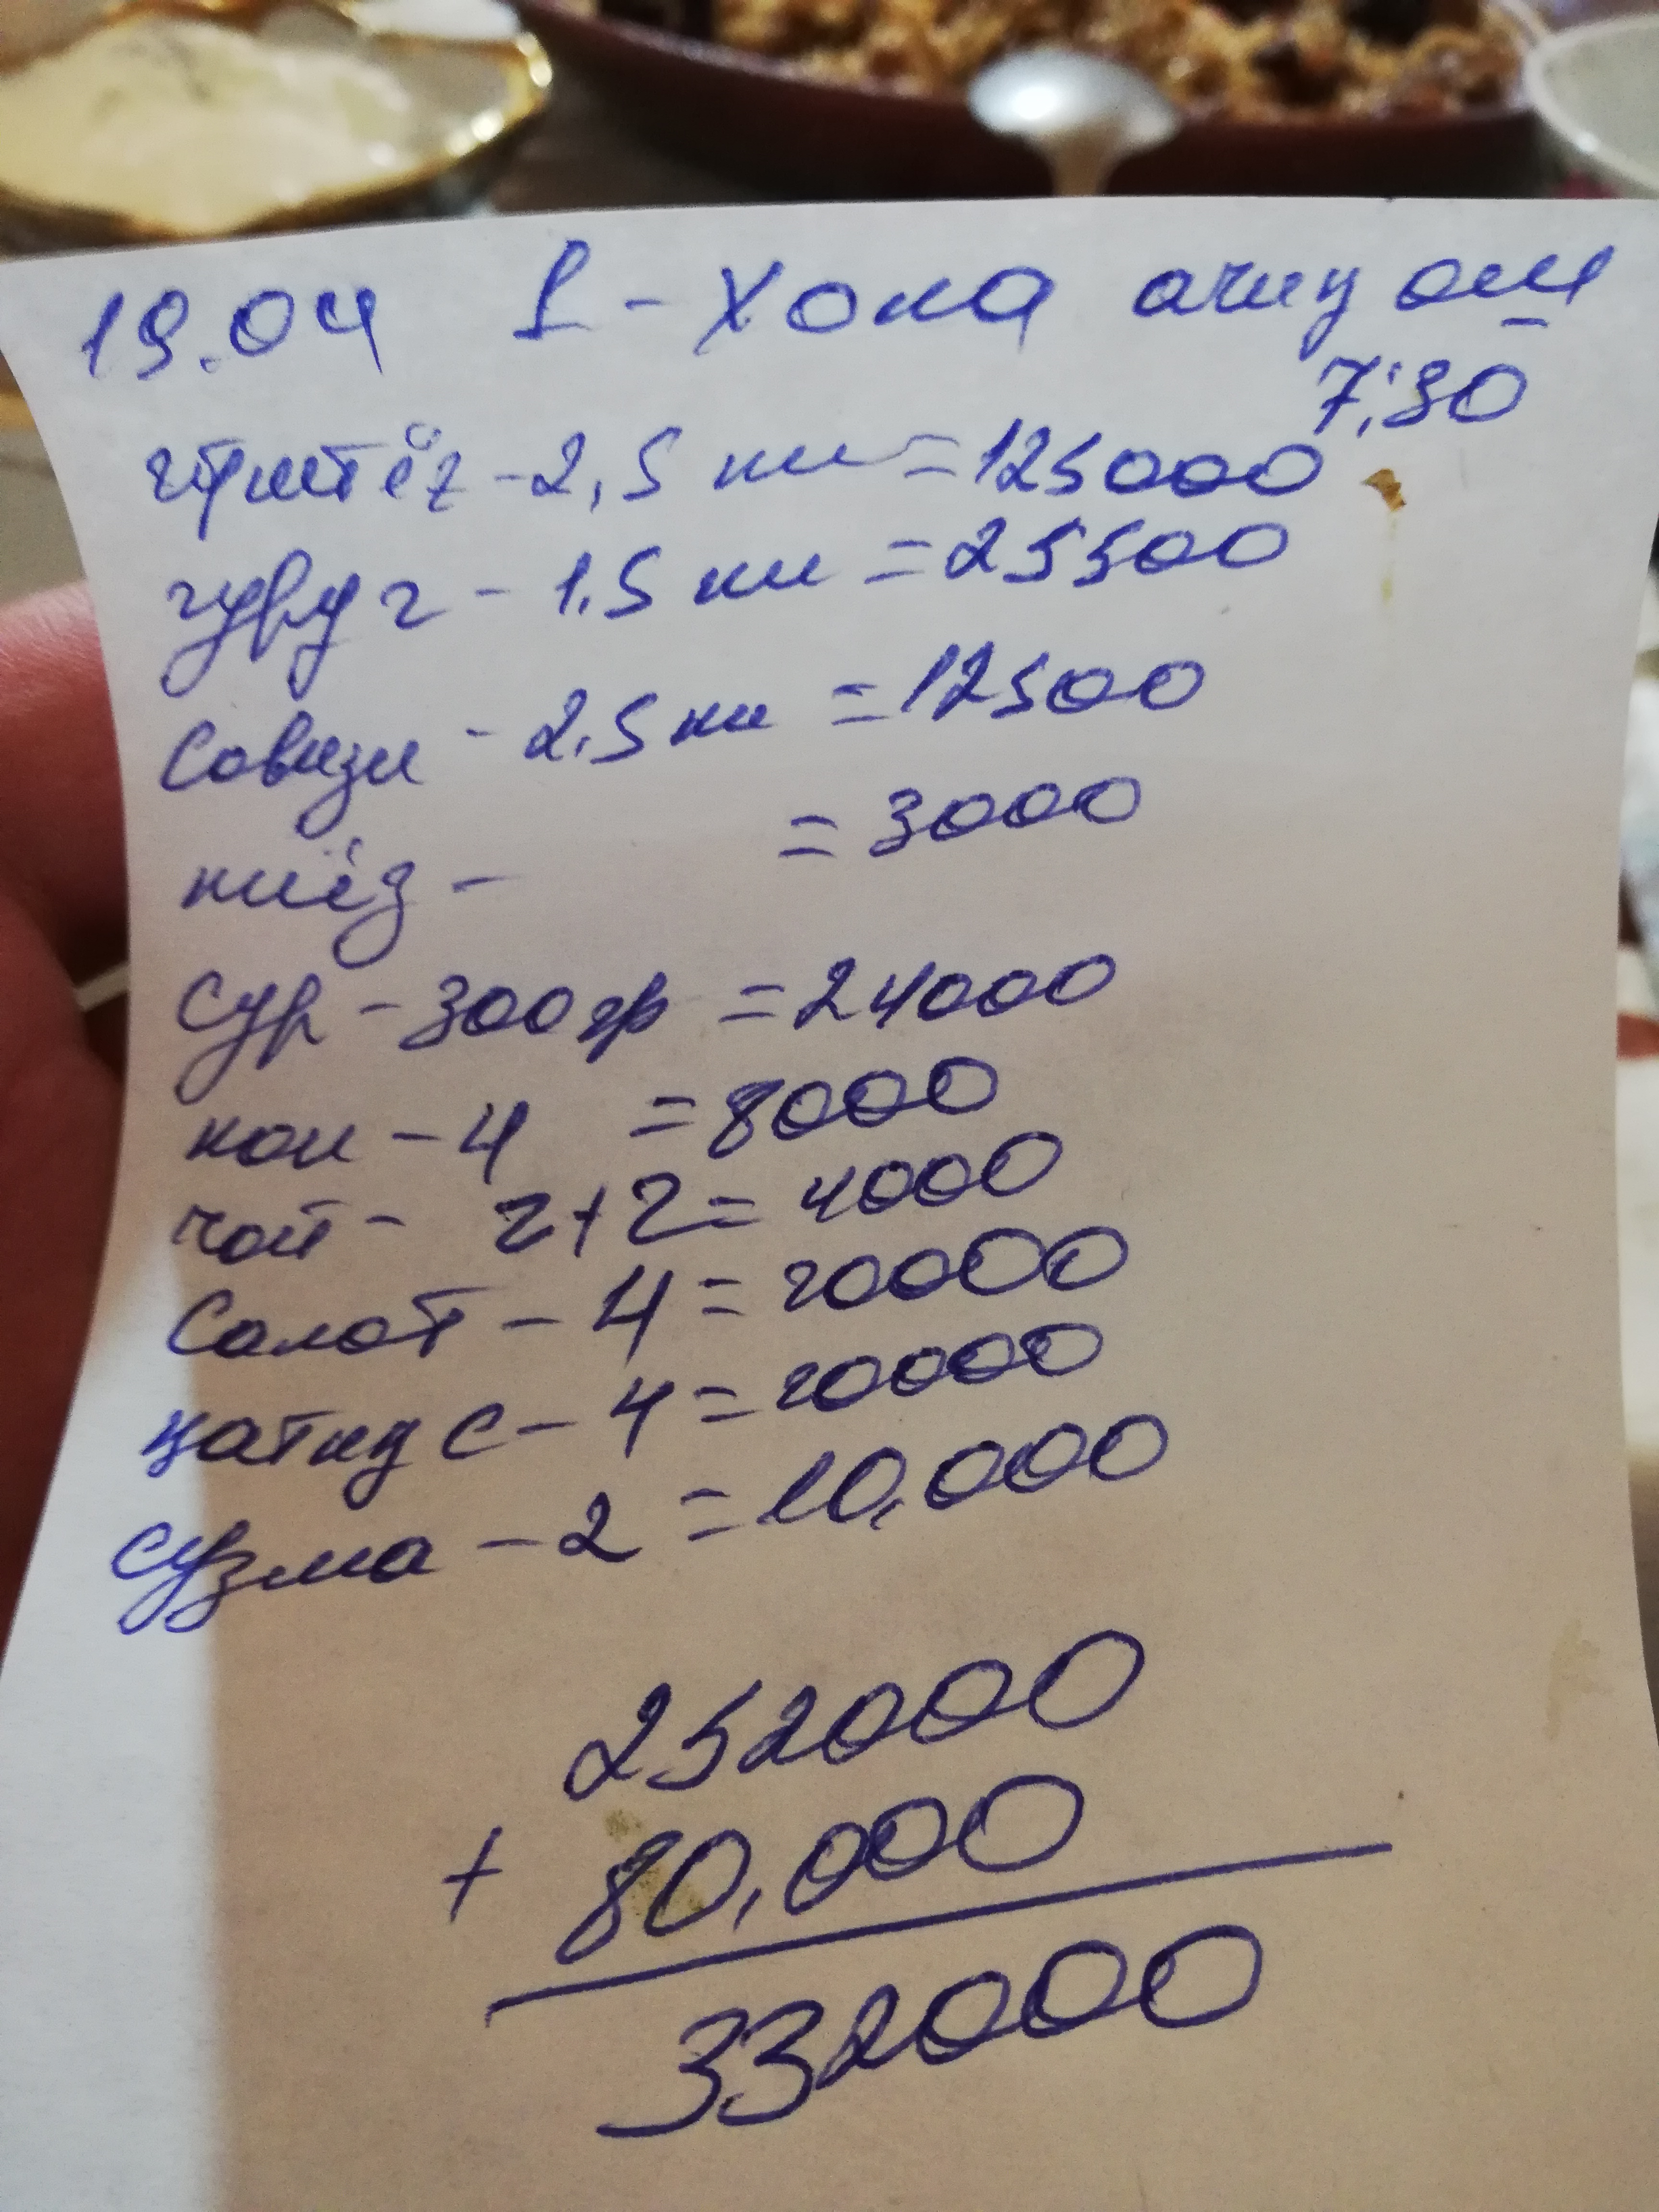 19.04 1-хона очиқ ош
7:30
гўшт ёғ - 2,5 ки = 125000
гуруч - 1.5 ки = 25500
Совзи - 2.5 ки = 12500
пиёз - = 3000
Сур - 300 гр = 24000
нон - 4 = 8000
чой - 2+2 = 4000
Салот - 4 = 20000
қатиқ с - 4 = 20000
сузма - 2 = 10,000
252000
+ 80,000
332000